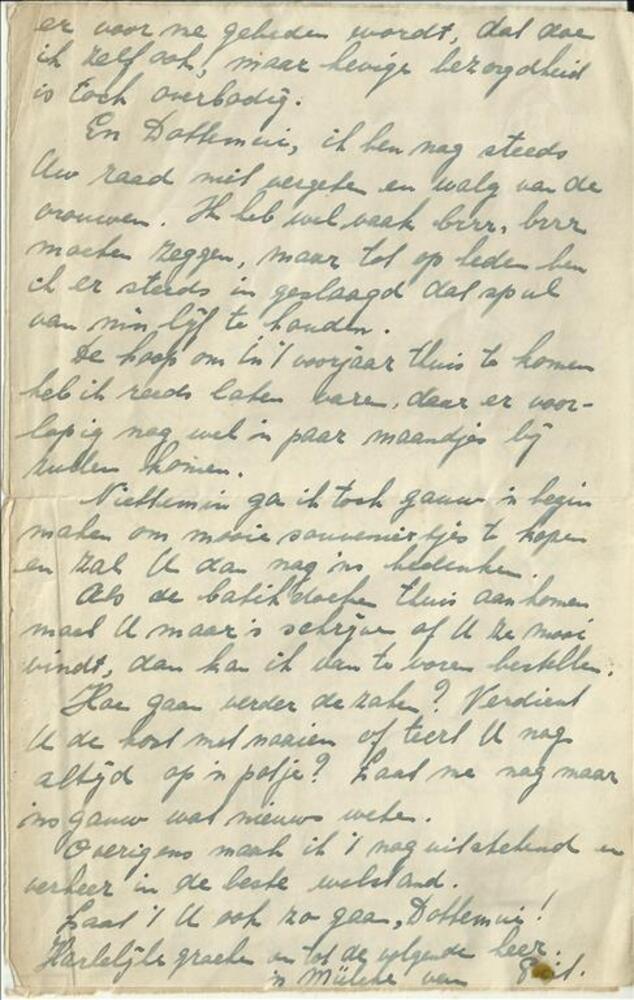 er voor me gebeden wordt, dat doe
ik zelf ook, maar hevige bezorgdheid
is toch overbodig.
En Dottemui, ik ben nog steeds
Uw raad niet vergeten en walg van de
vrouwen. Ik heb wel vaak brrr, brrr
moeten zeggen, maar tot op heden ben
ik er steeds in geslaagd dat spul
van mijn lijf te houden.
De hoop om in 't voorjaar thuis te komen
heb ik reeds laten varen, daar er voor-
lopig nog wel 'n paar maandjes bij
zullen komen.
Niettemin ga ik toch gauw 'n begin
maken om mooie souveniertjes te kopen
en zal U dan nog 'ns bedenken.
Als de batikdoeken thuis aankomen
moet U maar 's schrijven of U ze mooi
vindt, dan kan ik van te voren bestellen.
Hoe gaan verder de zaken? Verdient
U de kost met naaien of teert U nog
altijd op 'n potje? Laat me nog maar
'ns gauw wat nieuws weten.
Overigens maak ik 't nog uitstekend en
verkeer in de beste welstand.
Laat 't U ook zo gaan, Dottemui!
Hartelijke groeten en tot de volgende keer.
'n van